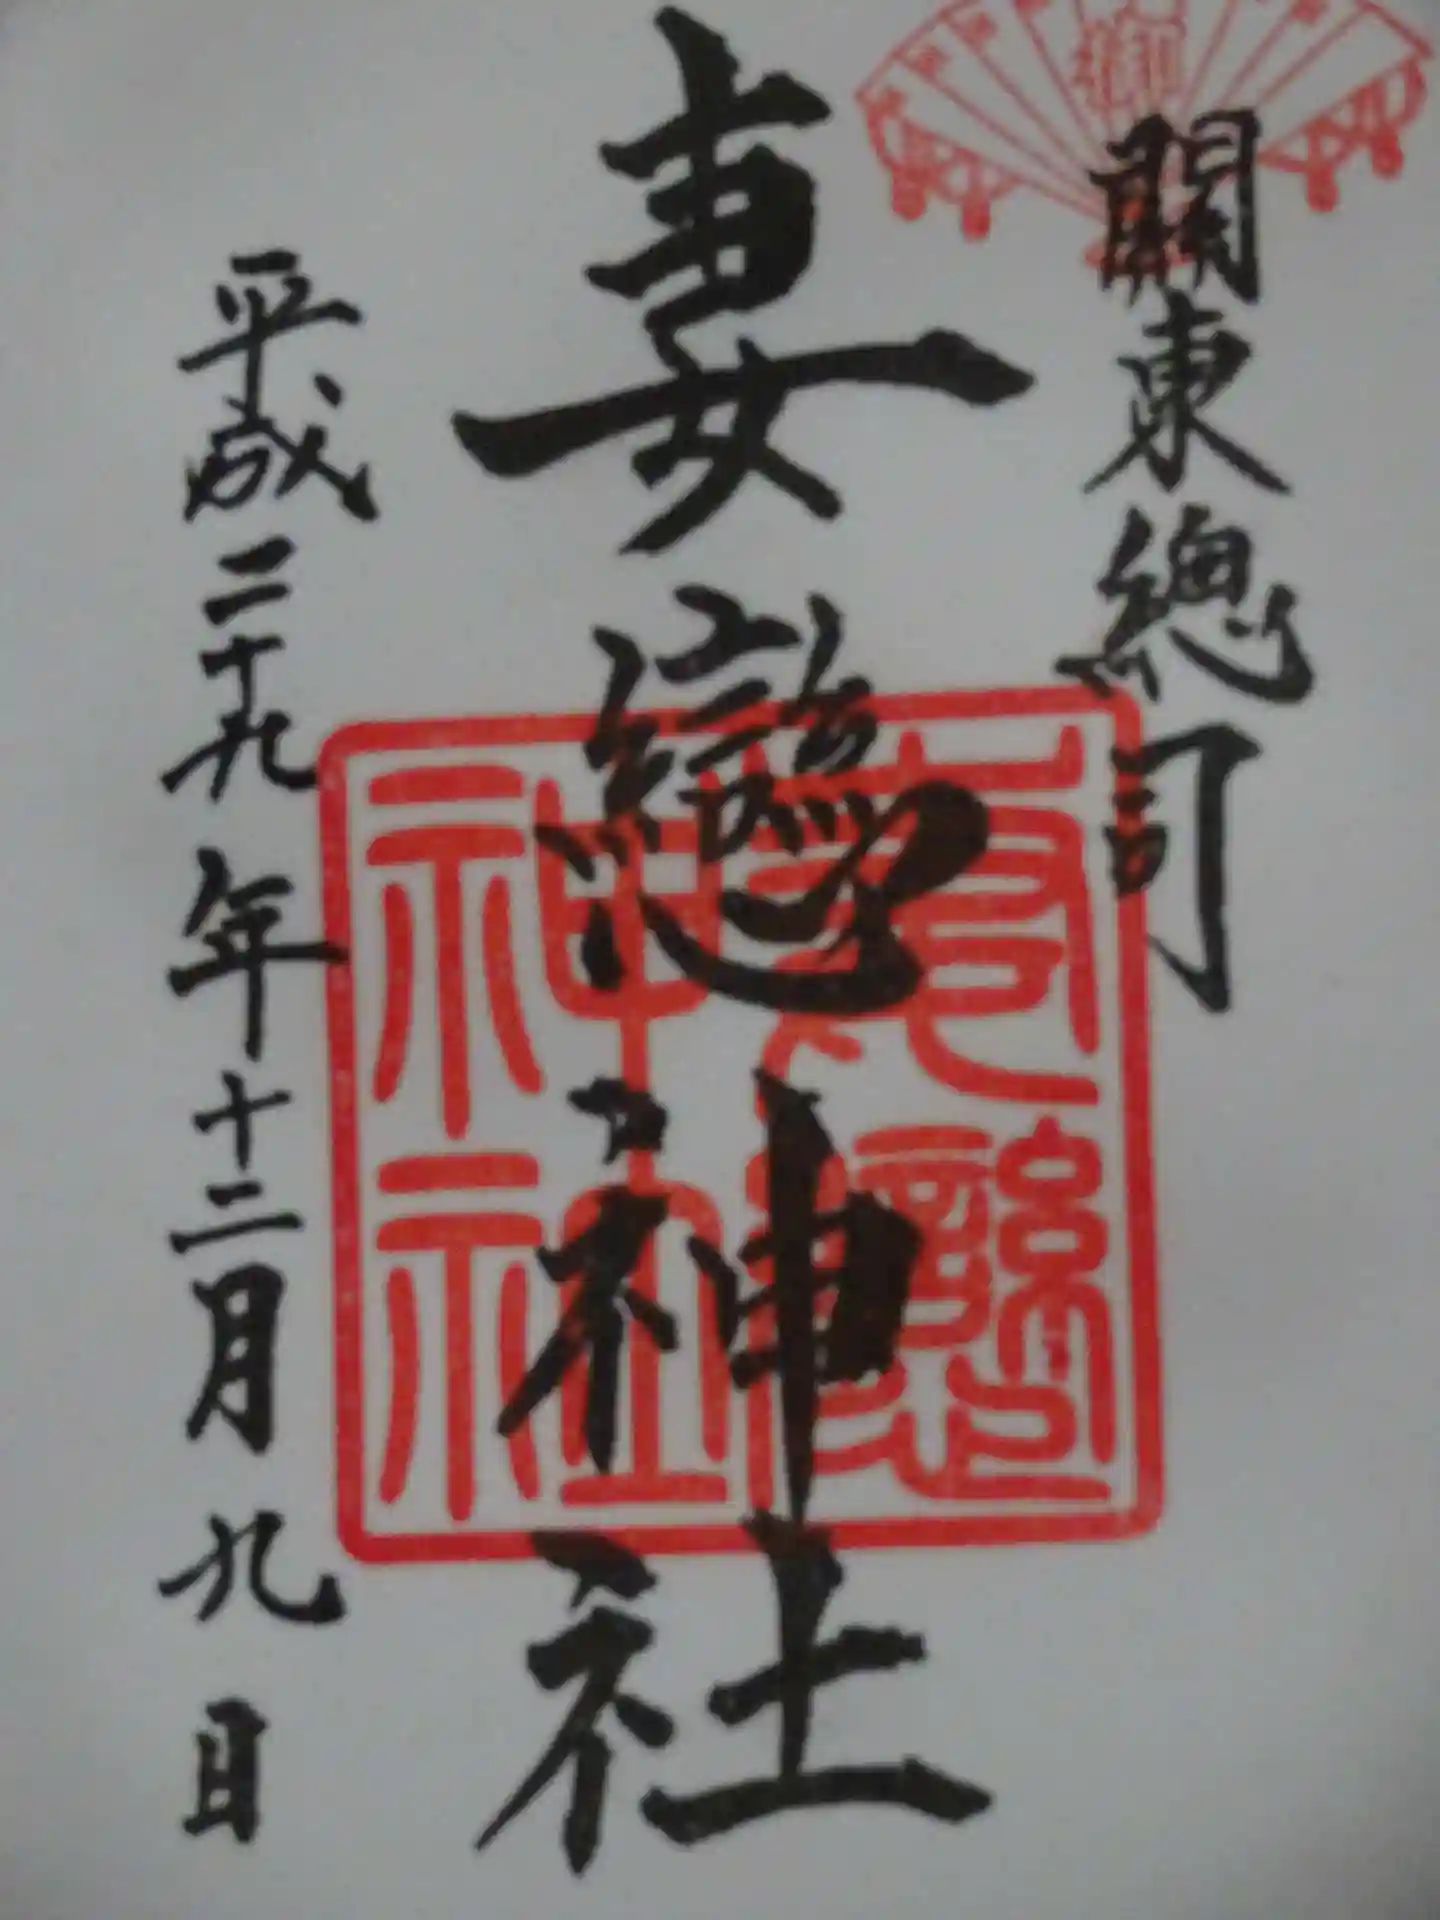 關東總司
妻戀神社
平成二十九年十二月九日
妻戀
神社